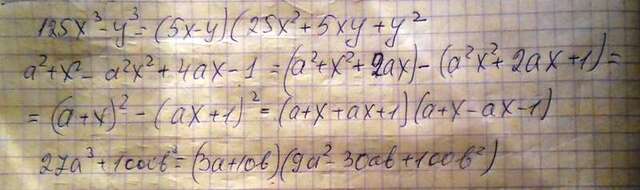 125x³-y³=(5x-y)(25x²+5xy+y²
a²+x²-a²x²+4ax-1=(a²+x²+2ax)-(a²x²+2ax+1)=
=(a+x)²-(ax+1)²=(a+x+ax+1)(a+x-ax-1)
27a³+1000b³=(3a+10b)(9a²-30ab+100b²)